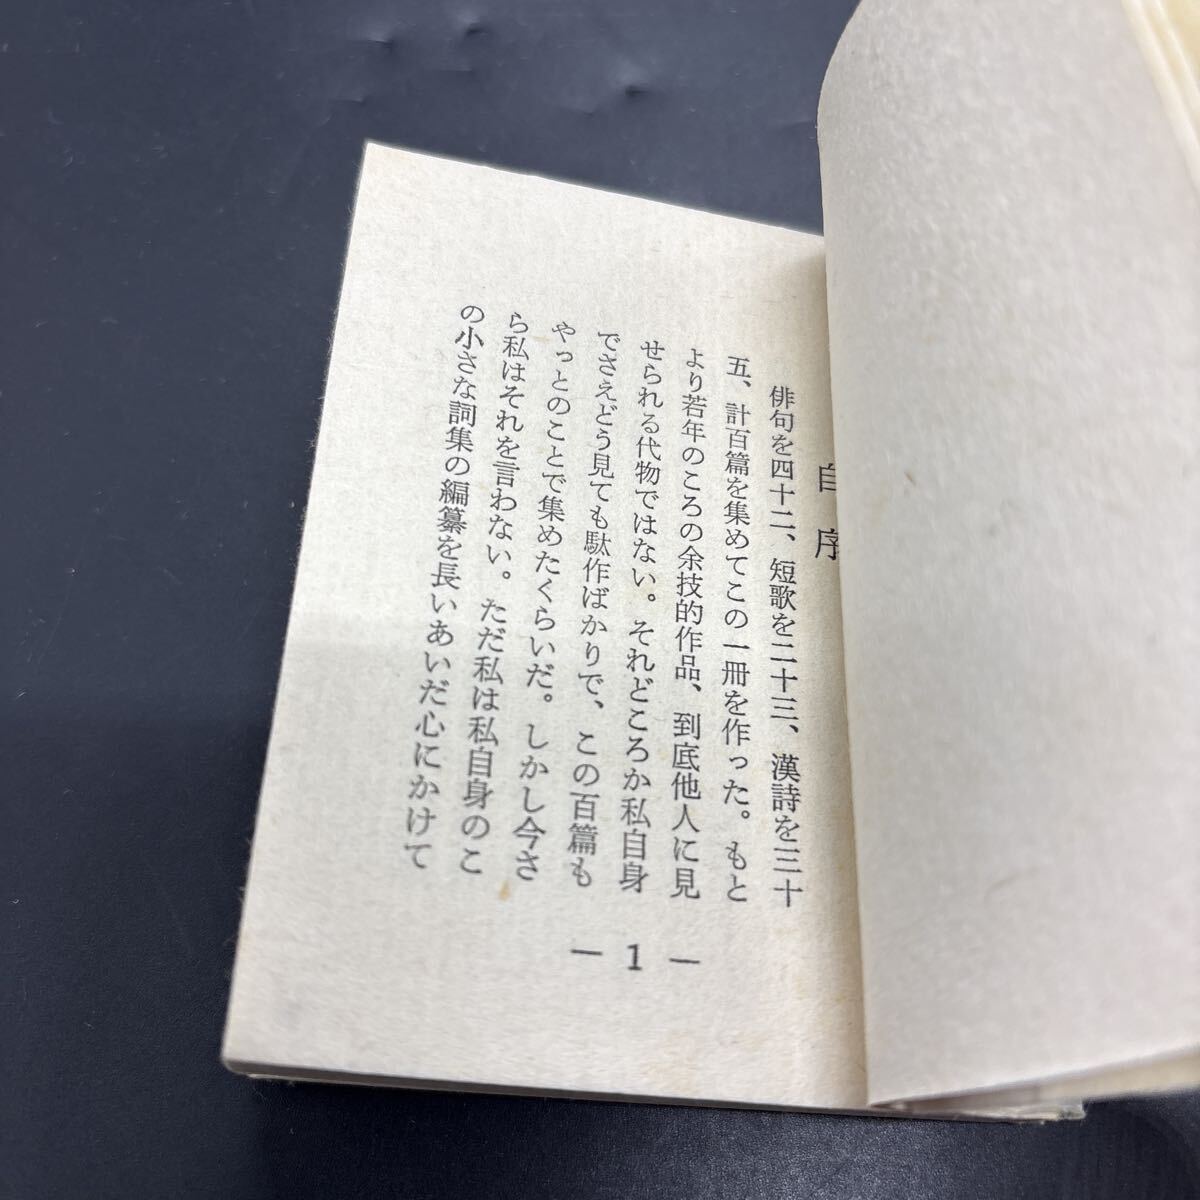 自序
俳句を四十二、短歌を二十三、漢詩を三十
五、計百篇を集めてこの一冊を作った。もと
より若年のころの余技的作品、到底他人に見
せられる代物ではない。それどころか私自身
でさえどう見ても駄作ばかりで、この百篇も
やっとのことで集めたくらいだ。しかし今さ
ら私はそれを言わない。ただ私は私自身のこ
の小さな詞集の編纂を長いあいだ心にかけて
— 1 —